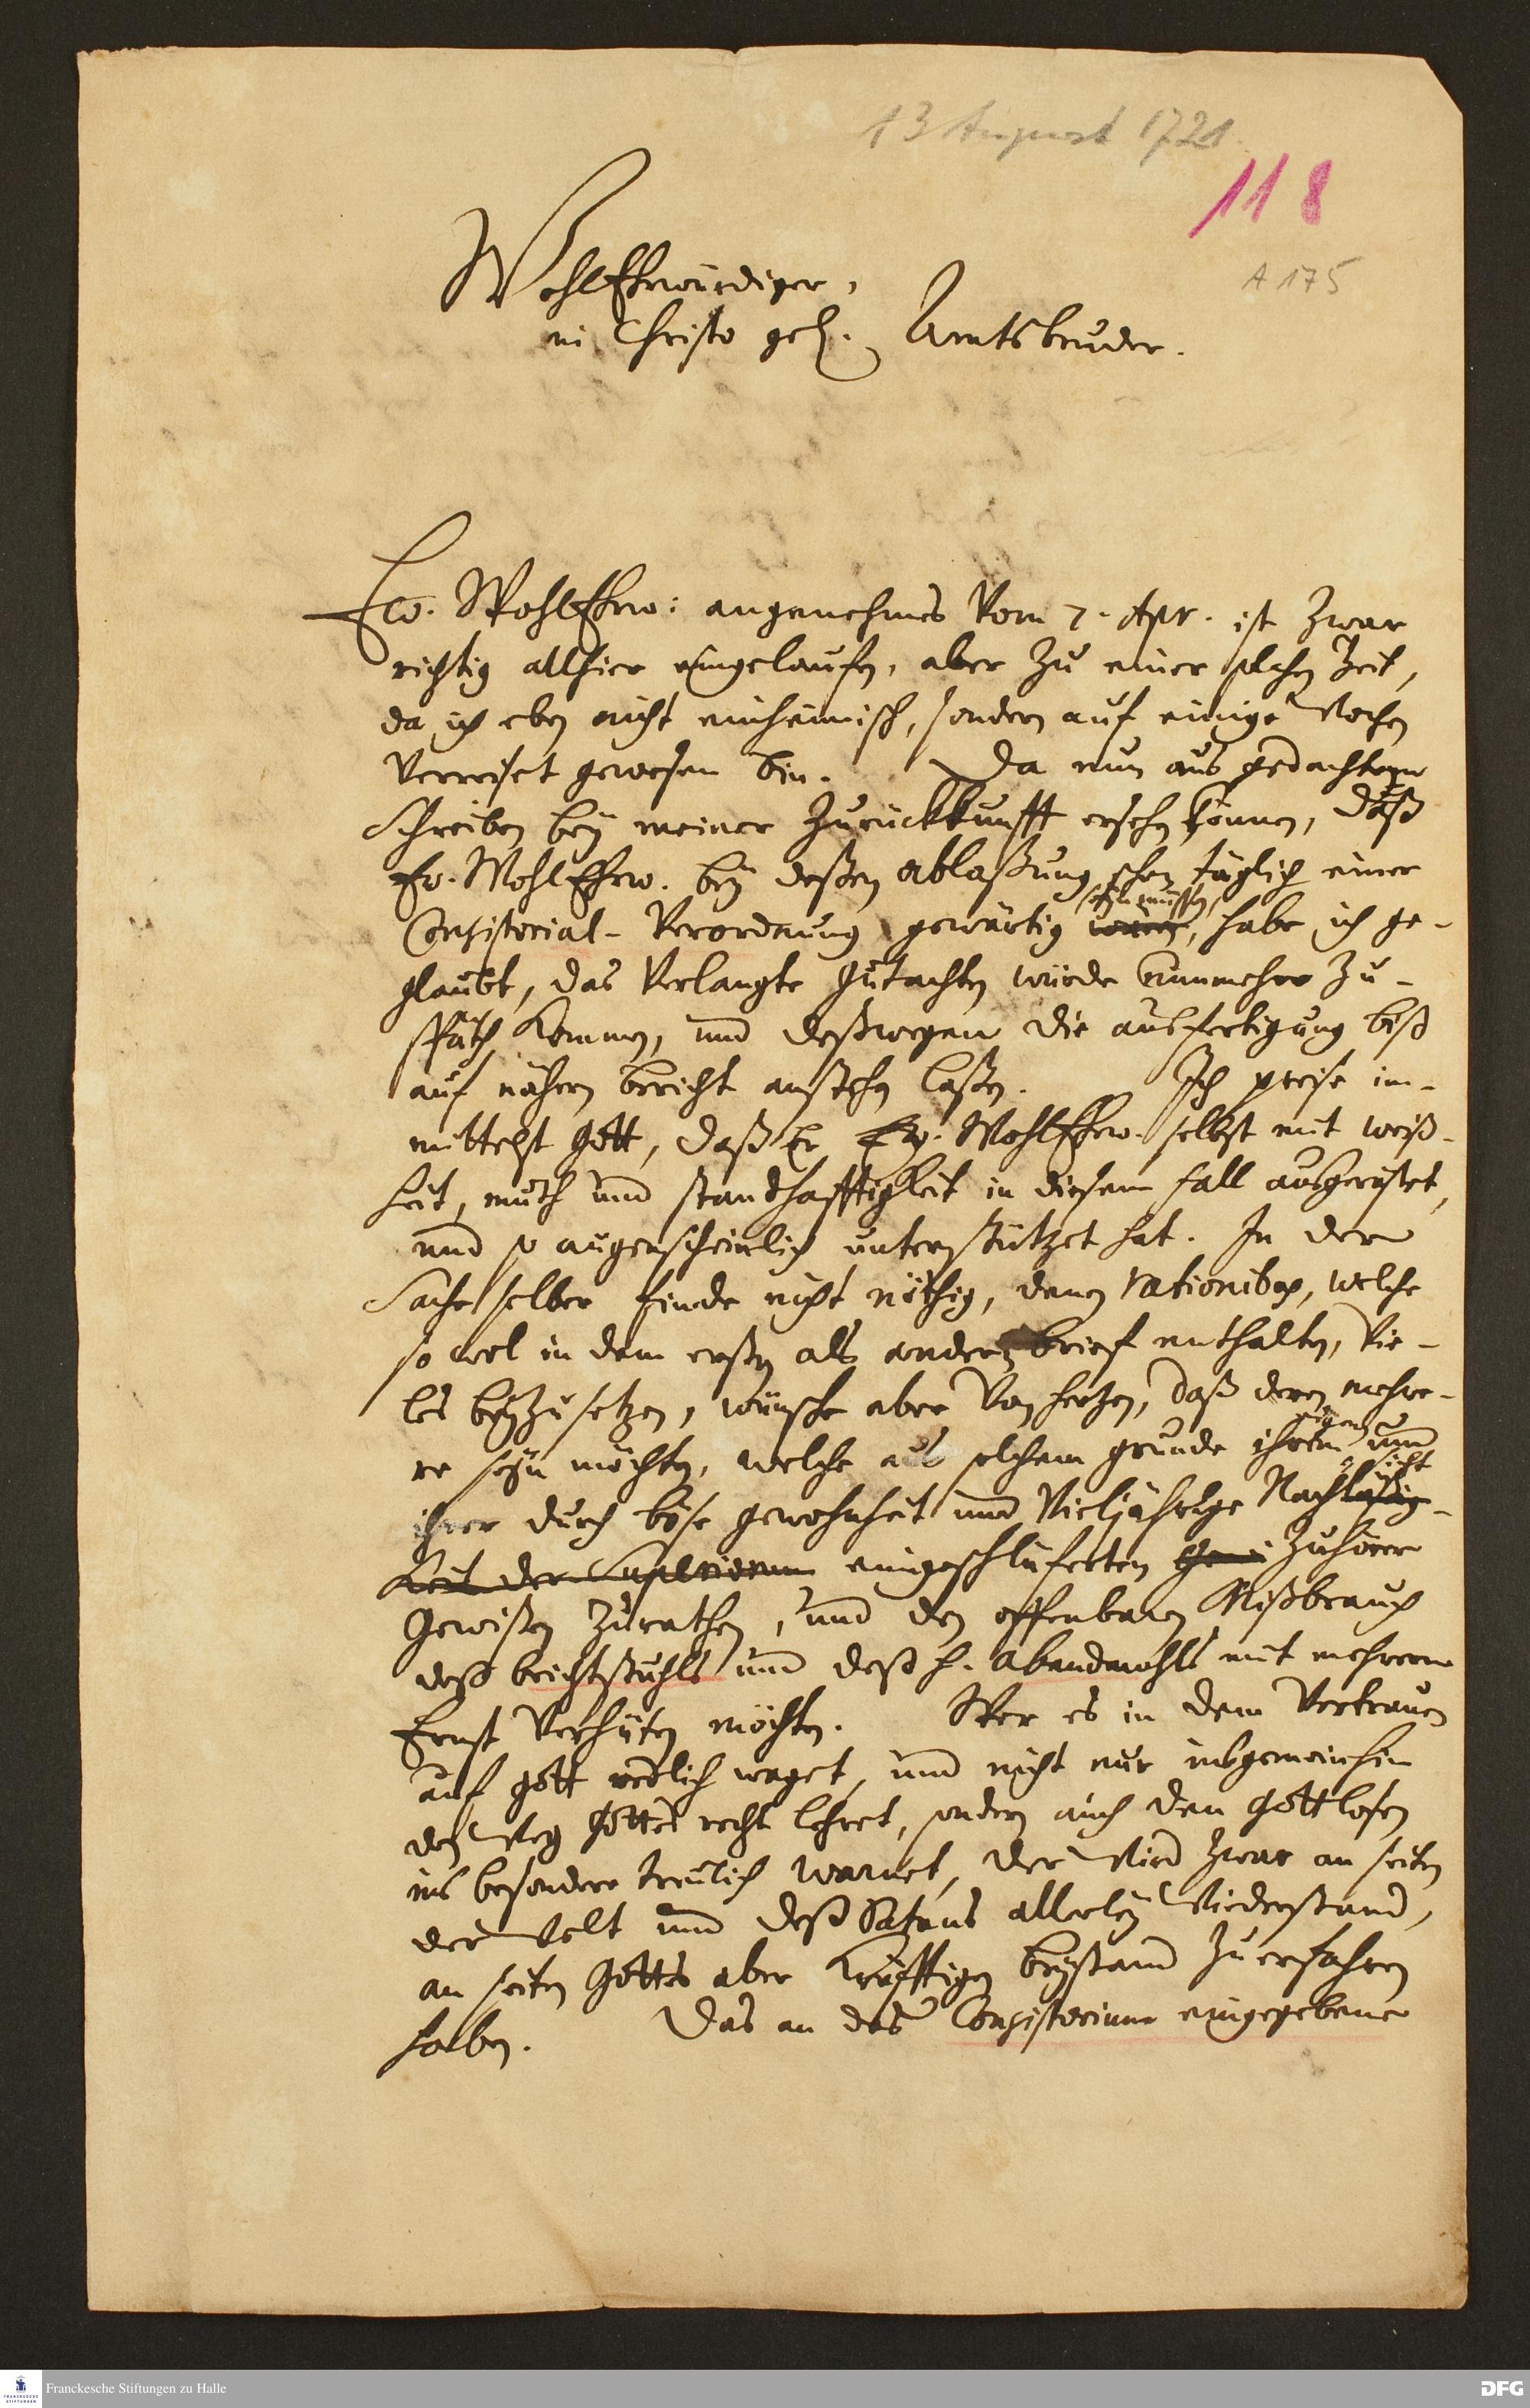 13 August 1721.
118
A 175
WohlEhrwürdiger,
in Christo gel. Amtsbruder.
Ew. WohlEhrw: angenehmes vom 7. Apr. ist zwar
richtig allhier eingelaufen, aber zu einer solchen Zeit,
da ich eben nicht einheimisch, sondern auf einige Wochen
verreiset gewesen bin. Da nun aus gedachtem
Schreiben bey meiner Zurückkunfft ersehen können, daß
Ew. WohlEhrw. bey deßen ablaßung schon täglich einer
seyn müssen
Consistorial-Verordnung gewärtig waren, habe ich ge-
glaubt, das verlangte Gutachten würde nunmehro zu-
späth kommen, und deßwegen die ausfertigung biß
auf nähern bericht anstehen laßen. Ich preise im-
mittelst Gott, daß Er Ew. WohlEhrw. selbst mit weiß-
heit, muth und standhafftigkeit in diesem fall ausgerüstet,
und so augenscheinlich unterstützet hat. In der
Sache selber finde nicht nöthig, denen rationibus, welche
so wol in dem ersten als andern brief enthalten, vie-
les beyzusetzen, wünsche aber von hertzen, daß deren mehre-
re seyn möchten, welche aus solchem grunde ihrem und
eigenen
ihrer durch böse gewohnheit und vieljährige Nachläßig-
sicht
keit der eingeschläferten Zuhörer
Gewißen zurathen, und den offenbaren Mißbrauch
deß beichtstuhls und deß h. abendmahls mit mehrerm
Ernst verhüten möchten. Wer es in dem Vertrauen
auf Gott redlich waget, und nicht nur insgemeinhin
den Weg Gottes recht lehret, sondern auch den Gottlosen
ins besondere treulich warnet, der wird zwar an seiten
der Welt und deß Satans allerley Wiederstand,
an seiten Gottes aber kräfftigen beystand zu erfahren
haben. Das an das Consistorium eingegebene
Franckesche Stiftungen zu Halle
DFG